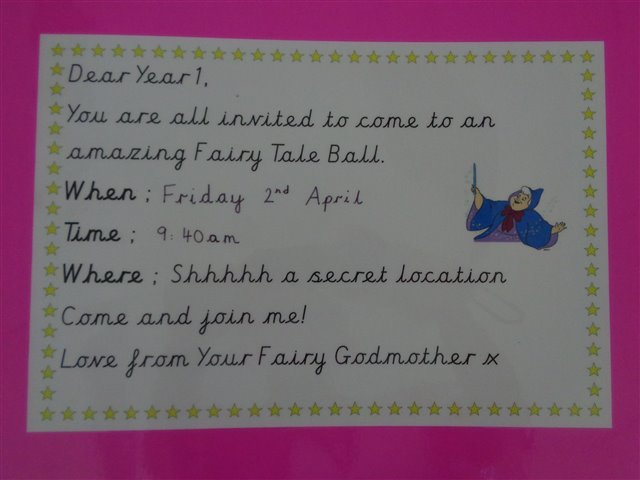 Dear Year 1,
You are all invited to come to an
amazing Fairy Tale Ball.
When ; Friday 2nd April
Time ; 9:40am
Where ; Shhhhh a secret location
Come and join me!
Love from Your Fairy Godmother x